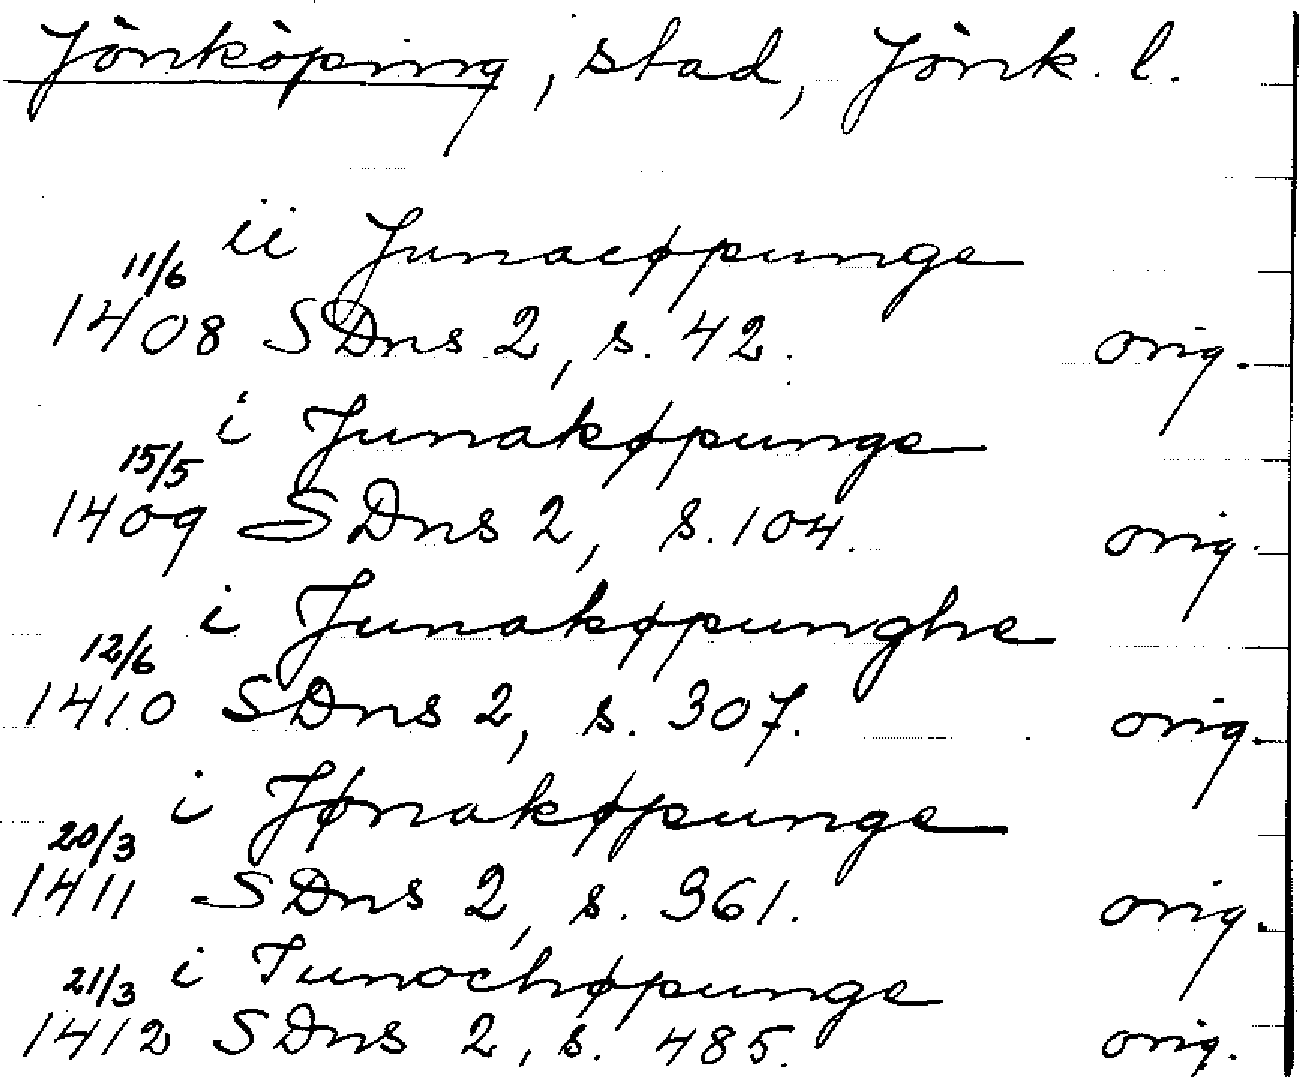 Jönköping, stad, Jönk. l.
ii Junacøpunge
11/6
1408 SDns 2, s. 42. orig.
i Junakøpunge
15/5
1409 SDns 2, s. 104. orig.
i Junakøpunghe
12/6
1410 SDns 2, s. 307. orig.
i Jønakøpunge
20/3
1411 SDns 2, s. 361. orig.
i Iunochøpunge
21/3
1412 SDns 2, s. 485. orig.